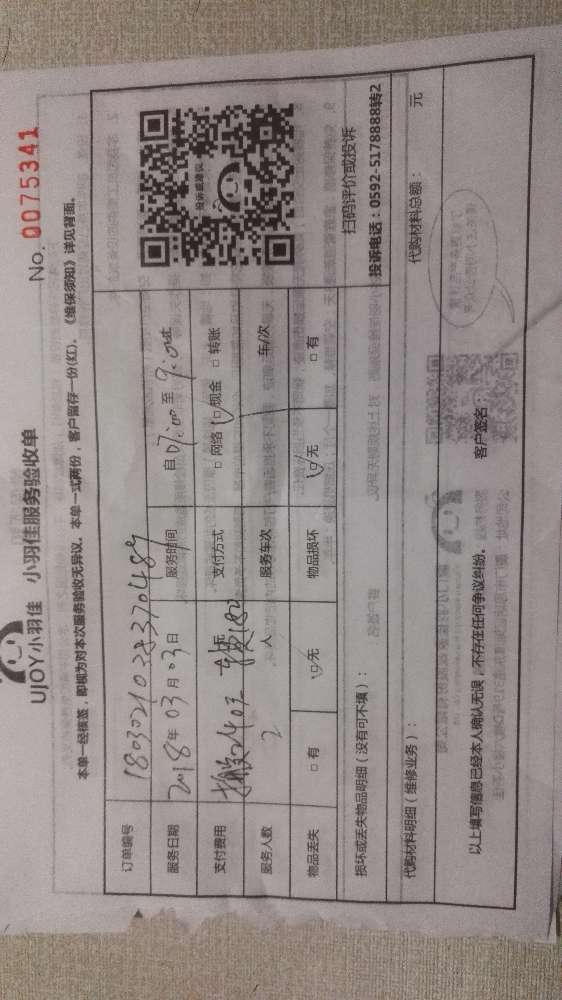 UJOY小羽佳 小羽佳服务验收单
No. 0075341
本单一经核签，即视为对本次服务验收无异议，本单一式两份，客户留存一份(红)，《维保须知》详见背面。
订单编号
服务日期 2018年03月03日 服务时间 自07:00至9:00
支付费用 支付方式 □网络 □现金 □转账
服务人数 2 人 服务车次 车/次
物品丢失 □有 □无 物品损坏 □无 □有
投诉或建议
扫码评价或投诉
投诉电话：0592-5178888转2
损坏或丢失物品明细（没有可不填）：
代购材料明细（维修业务）： 代购材料总额： 元
以上填写信息已经本人确认无误，不存在任何争议纠纷。 客户签名：